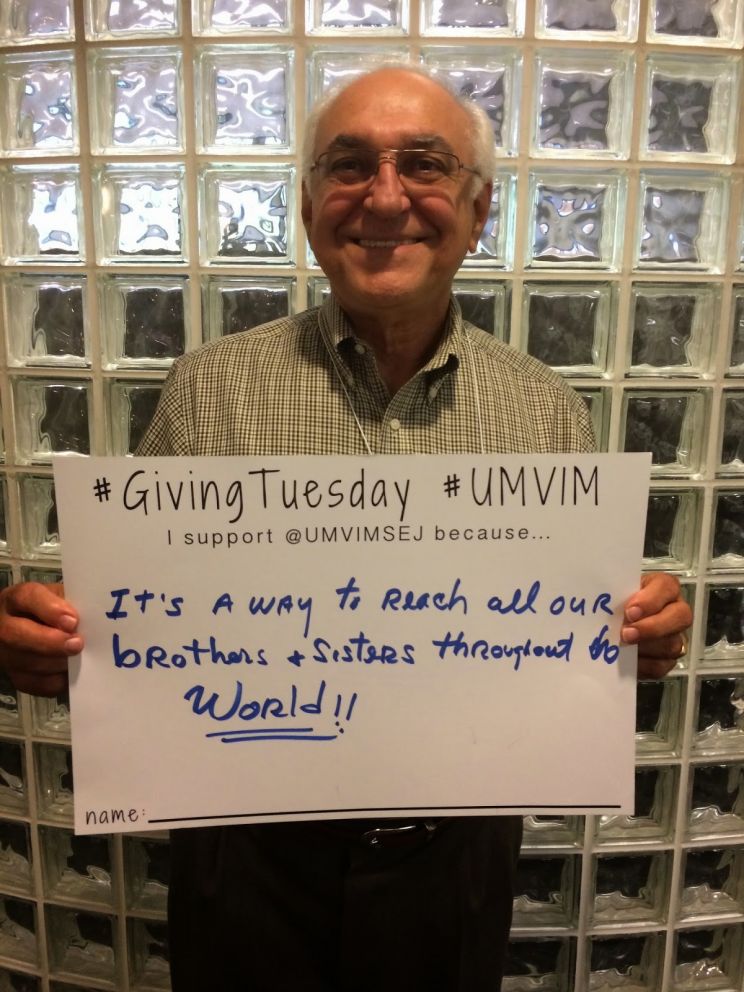 #GivingTuesday #UMVIM
I support @UMVIMSEJ because...
It's a way to reach all our
brothers + sisters throughout
World!!
name: